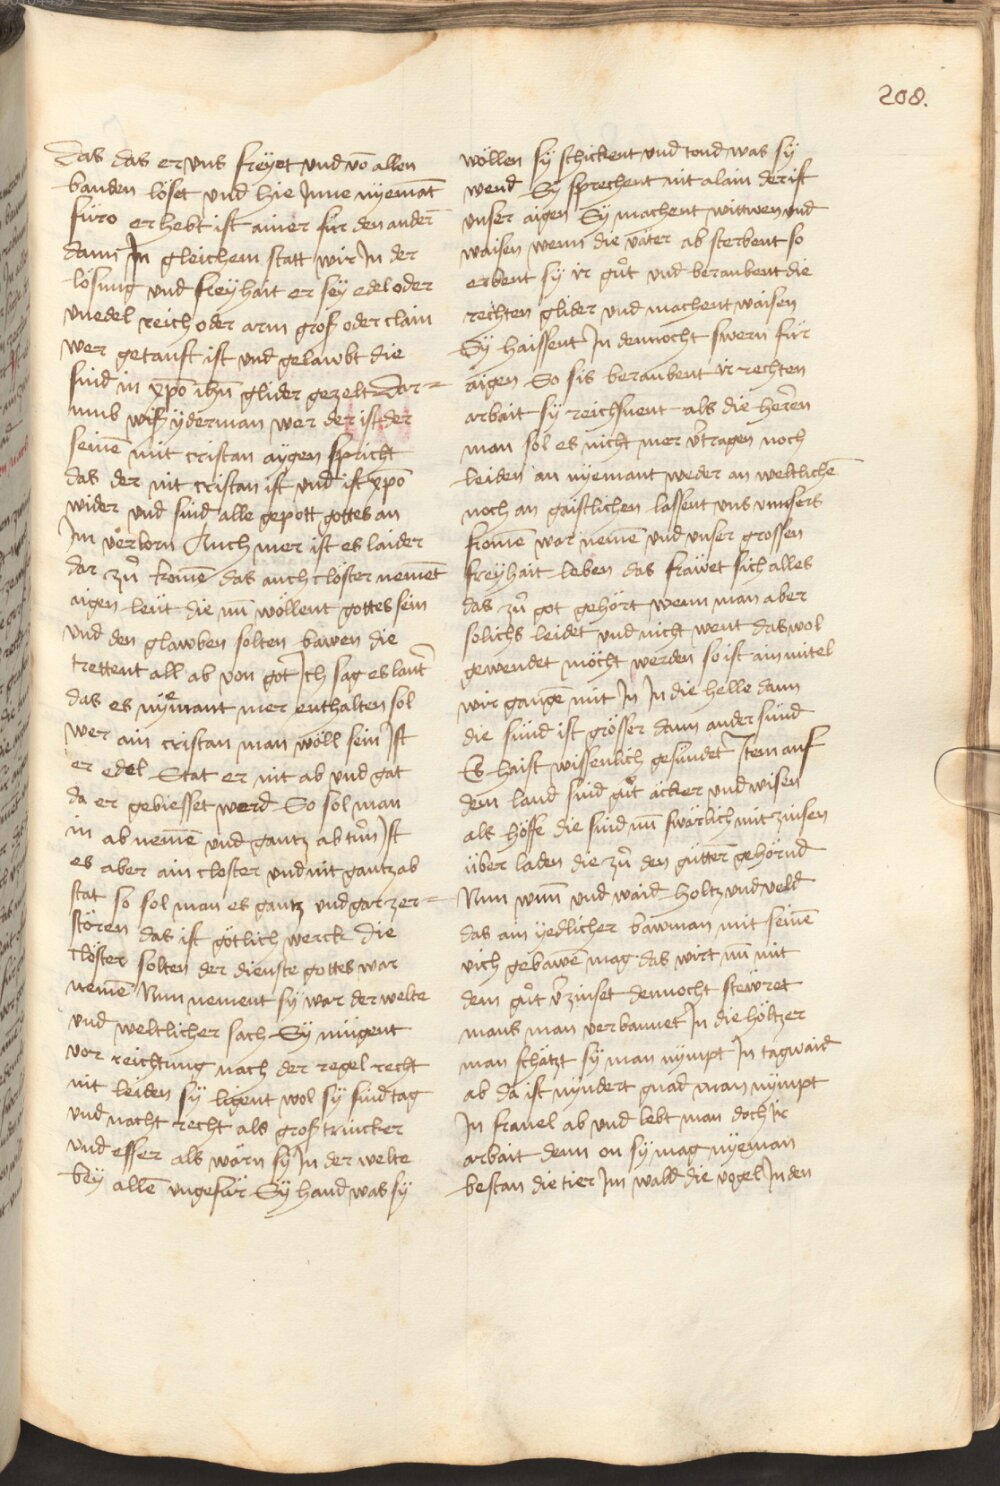 208.
das das er vns freyet vnd vō allen
banden löset vnd hie Inne nyemāt
füro erhebt ist ainer für den andern̄
dann In gleichem statt wir In der
lösung vnd freyhait er sey edel oder
vnedel reich oder arm groß oder clain
wer getauft ist vnd gelawbt die
sind in xp̄o ih̄u glider gezelt Dar=
umb wiß yderman wer der ist der
seinē mit cristan aÿgen spricht
das der nit cristan ist vnd ist xp̄o
wider vnd sind alle gepott gottes an
Im verlorn Auch mer ist es laider
dar zů komē das auch clöster nemēt
aigen leüt die nū wöllent gottes sein
vnd den glawben solten bawen die
trettent all ab von got Ich sag es lautt̄
das es nyemant mer enthalten sol
wer ain cristan man wöll sein Ist
er edel Stat er nit ab vnd gat
da er gebiesset werd So sol man
in ab nemē vnd gantz ab tůn Ist
es aber ain closter vnd nit gantz ab
stat so sol man es gantz vnd gar zer=
stören das ist götlich werck die
clöster solten der dienste gottes war
nemē Nun nement sy war der welte
vnd weltlicher sach Sy mügent
vor reichtung nach der regel recht
nit leiden sy ligent wol sy sind tag
vnd nacht recht als groß trincker
vnd esser als wärn sy In der welte
bey allē vngefür Sy hand was sy
wöllen sy schickent vnd tond was sy
wend Sy sprechent nit alain der ist
vnser aigen Sy machent wittwen vnd
waisen wenn die väter ab sterbent so
erbent sy ir gůt vnd beraubent die
rechten glider vnd machent waisen
Sy haissent In dennocht swern für
äigen So sis beraubent ir rechten
arbait sy reichsnent als die herēn
man sol es nicht mer v̄tragen noch
leiden an nyemant weder an weltlichē
noch an gaistlichen lassent vns vnnsers
fromē war nemē vnd vnser grossen
freyhait leben das fräwet sich alles
das zů got gehört wenn man aber
solichs leidet vnd nicht went das wol
gewendet möcht werden so ist ain mitel
wir gangē mit In In die helle dann
die sünd ist grösser dann ander sünd
Es haist wissenlich gesündet Item auf
dem land sind gůt äcker vnd wisen
als höffe die sind nū swärlich mit zinsen
über laden die zů den gütterē gehörnd
Nun wnn vnd waid holtz vnd veld
das ain yedlicher bawman mit seinē
vich gebawē mag das wirt nū mit
dem gůt v̄zinset dennocht stewret
mans man verbannet In die höltzer
man schätzt sy man nympt In tagwaid
ab da ist nyndert gnad man nympt
In frauel ab vnd lebt man doch ir
arbait denn on sy mag nyeman
bestan die tier Im wald die vogel In den